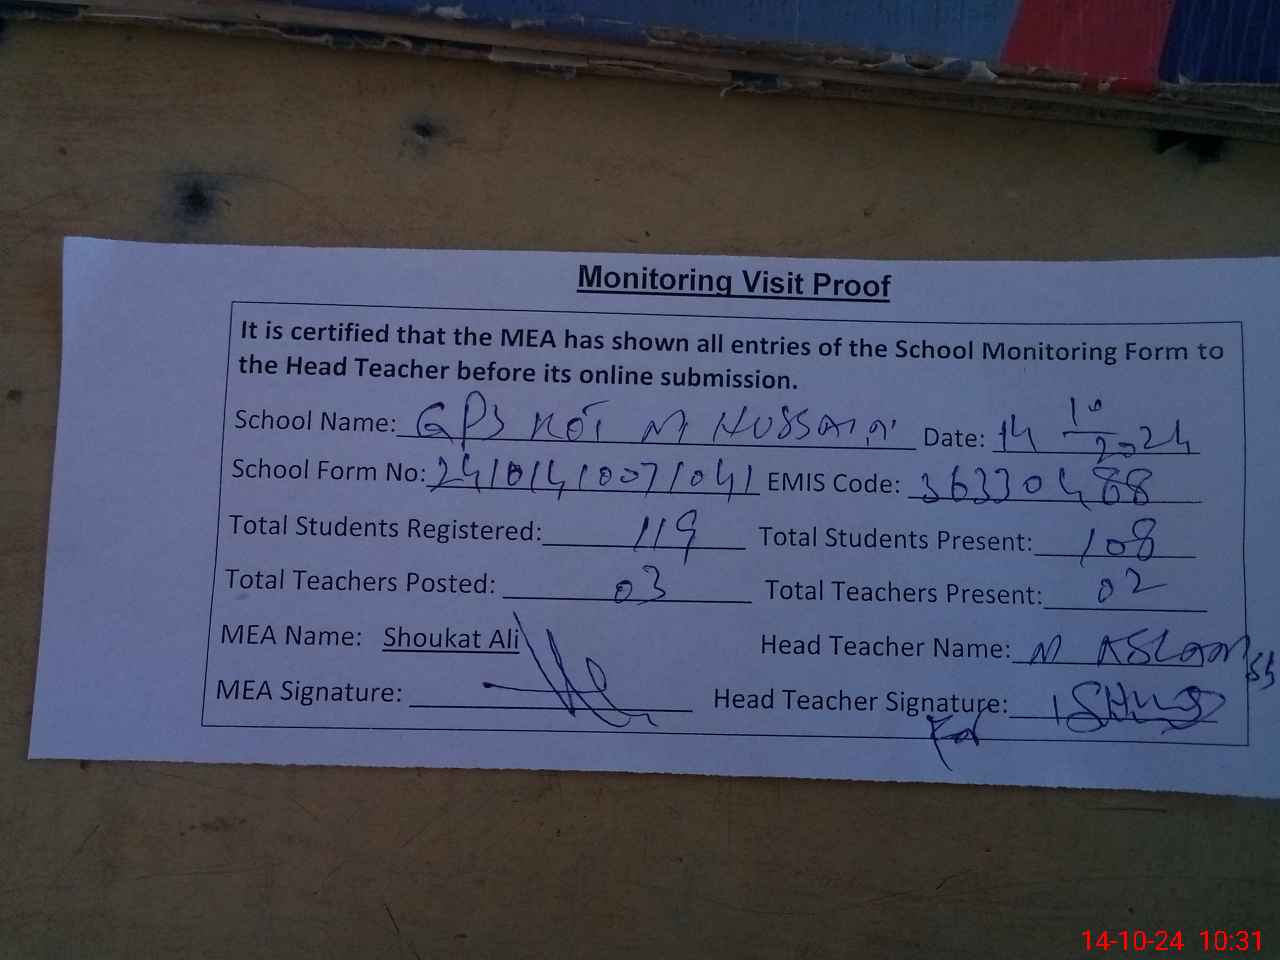 Monitoring Visit Proof
It is certified that the MEA has shown all entries of the School Monitoring Form to
the Head Teacher before its online submission.
School Name: GPS KOT M HUSSAIN Date: 14/10/2024
School Form No: 24101410071041 EMIS Code: 36330488
Total Students Registered: 119 Total Students Present: 108
Total Teachers Posted: 03 Total Teachers Present: 02
MEA Name: Shoukat Ali Head Teacher Name: M ASLAM
MEA Signature: Head Teacher Signature:
For
14-10-24 10:31